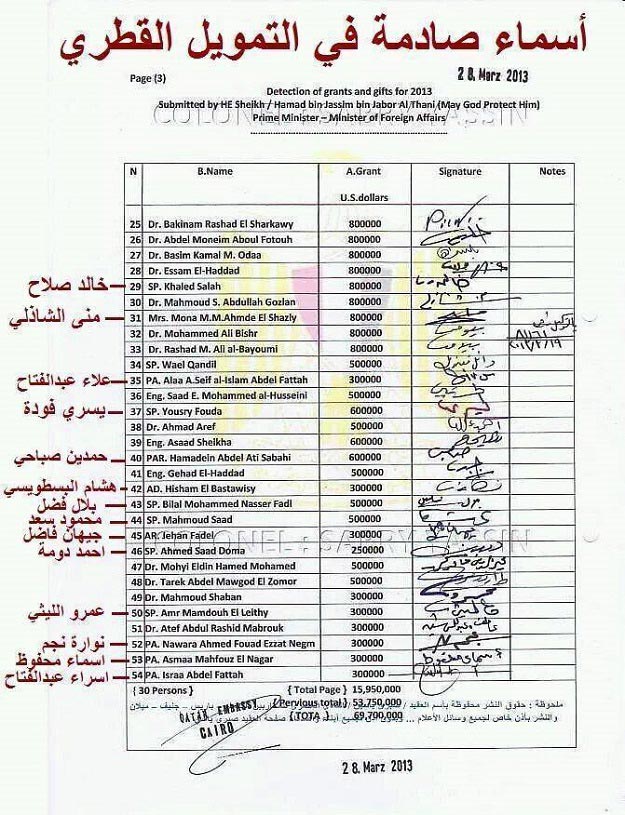 أسماء صادمة في التمويل القطري
28. Marz 2013
Page (3)
Detection of grants and gifts for 2013
Submitted by HE Sheikh / Hamad bin Jassim bin Jabor Al Thani (May God Protect Him)
COLONEL : SABRY YASSIN
Prime Minister – Minister of Foreign Affairs
N B.Name A.Grant U.S.dollars Signature Notes
25 Dr. Bakinam Rashad El Sharkawy 800000
26 Dr. Abdel Moneim Aboul Fotouh 800000
27 Dr. Basim Kamal M. Odaa 800000
28 Dr. Essam El-Haddad 800000
خالد صلاح 29 SP. Khaled Salah 800000
30 Dr. Mahmoud S. Abdullah Gozlan 800000
منى الشاذلي 31 Mrs. Mona M.M.Ahmde El Shazly 800000
32 Dr. Mohammed Ali Bishr 800000
33 Dr. Rashad M. Ali al-Bayoumi 800000
34 SP. Wael Qandil 500000
علاء عبدالفتاح 35 PA. Alaa A.Seif al-Islam Abdei Fattah 300000
36 Eng. Saad E. Mohammed al-Husseini 500000
يسري فودة 37 SP. Yousry Fouda 600000
38 Dr. Ahmad Aref 500000
39 Eng. Asaad Sheikha 600000
حمدين صباحي 40 PAR. Hamadein Abdel Ati Sabahi 600000
41 Eng. Gehad El-Haddad 500000
هشام البسطويسي 42 AD. Hisham El Bastawisy 300000
بلال فضل 43 SP. Bilal Mohammed Nasser Fadl 500000
محمود سعد 44 SP. Mahmoud Saad 500000
جيهان فاضل 45 AR. Jehan Fadel 300000
COLONEL : SABRY YASSIN
احمد دومة 46 SP. Ahmed Saad Doma 250000
47 Dr. Mohyi Eldin Hamed Mohamed 500000
48 Dr. Tarek Abdel Mawgod El Zomor 500000
49 Dr. Mahmoud Shaban 300000
عمرو الليثي 50 SP. Amr Mamdouh El Leithy 300000
51 Dr. Atef Abdul Rashid Mabrouk 300000
نوارة نجم 52 PA. Nawara Ahmed Fouad Ezzat Negm 300000
اسماء محفوظ 53 PA. Asmaa Mahfouz El Nagar 300000
اسراء عبدالفتاح 54 PA. Israa Abdel Fattah 300000
{ 30 Persons } { Total Page } 15,950,000
{ Pervious total } 53,750,000
{ TOTA } 69,700,000
ملحوظة : حقوق النشر محفوظة بأسم العقيد / صبري ياسين باريس – جنيف – ميلان
والنشر بأذن خاص لجميع وسائل الأعلام صفحة العقيد صبري
QATAR EMBASSY
CAIRO
28. Marz 2013